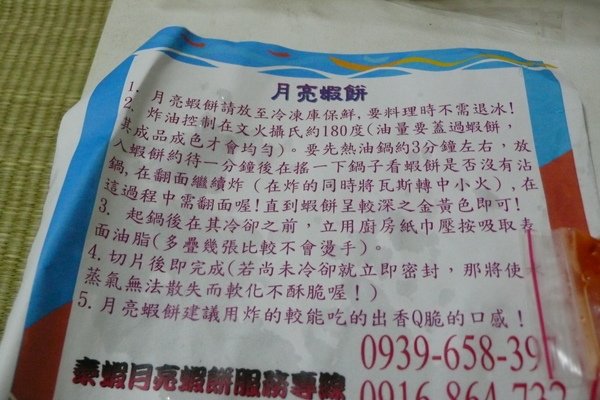 月亮蝦餅
1. 月亮蝦餅請放至冷凍庫保鮮,要料理時不需退冰!
2. 炸油控制在文火攝氏約180度(油量要蓋過蝦餅,
其成品成色才會均勻)。要先熱油鍋約3分鐘左右,放
入蝦餅約待一分鐘後在搖一下鍋子看蝦餅是否沒有沾
鍋,在翻面繼續炸(在炸的同時將瓦斯轉中小火),在
這過程中需翻面喔!直到蝦餅呈較深之金黃色即可!
3. 起鍋後在其冷卻之前,立用廚房紙巾壓按吸取表
面油脂(多疊幾張比較不會燙手)。
4. 切片後即完成(若尚未冷卻就立即密封,那將使
蒸氣無法散失而軟化不酥脆喔!)
5. 月亮蝦餅建議用炸的較能吃的出香Q脆的口感!
0939-658-39
秦蝦月亮蝦餅服務專線
0916-864-732